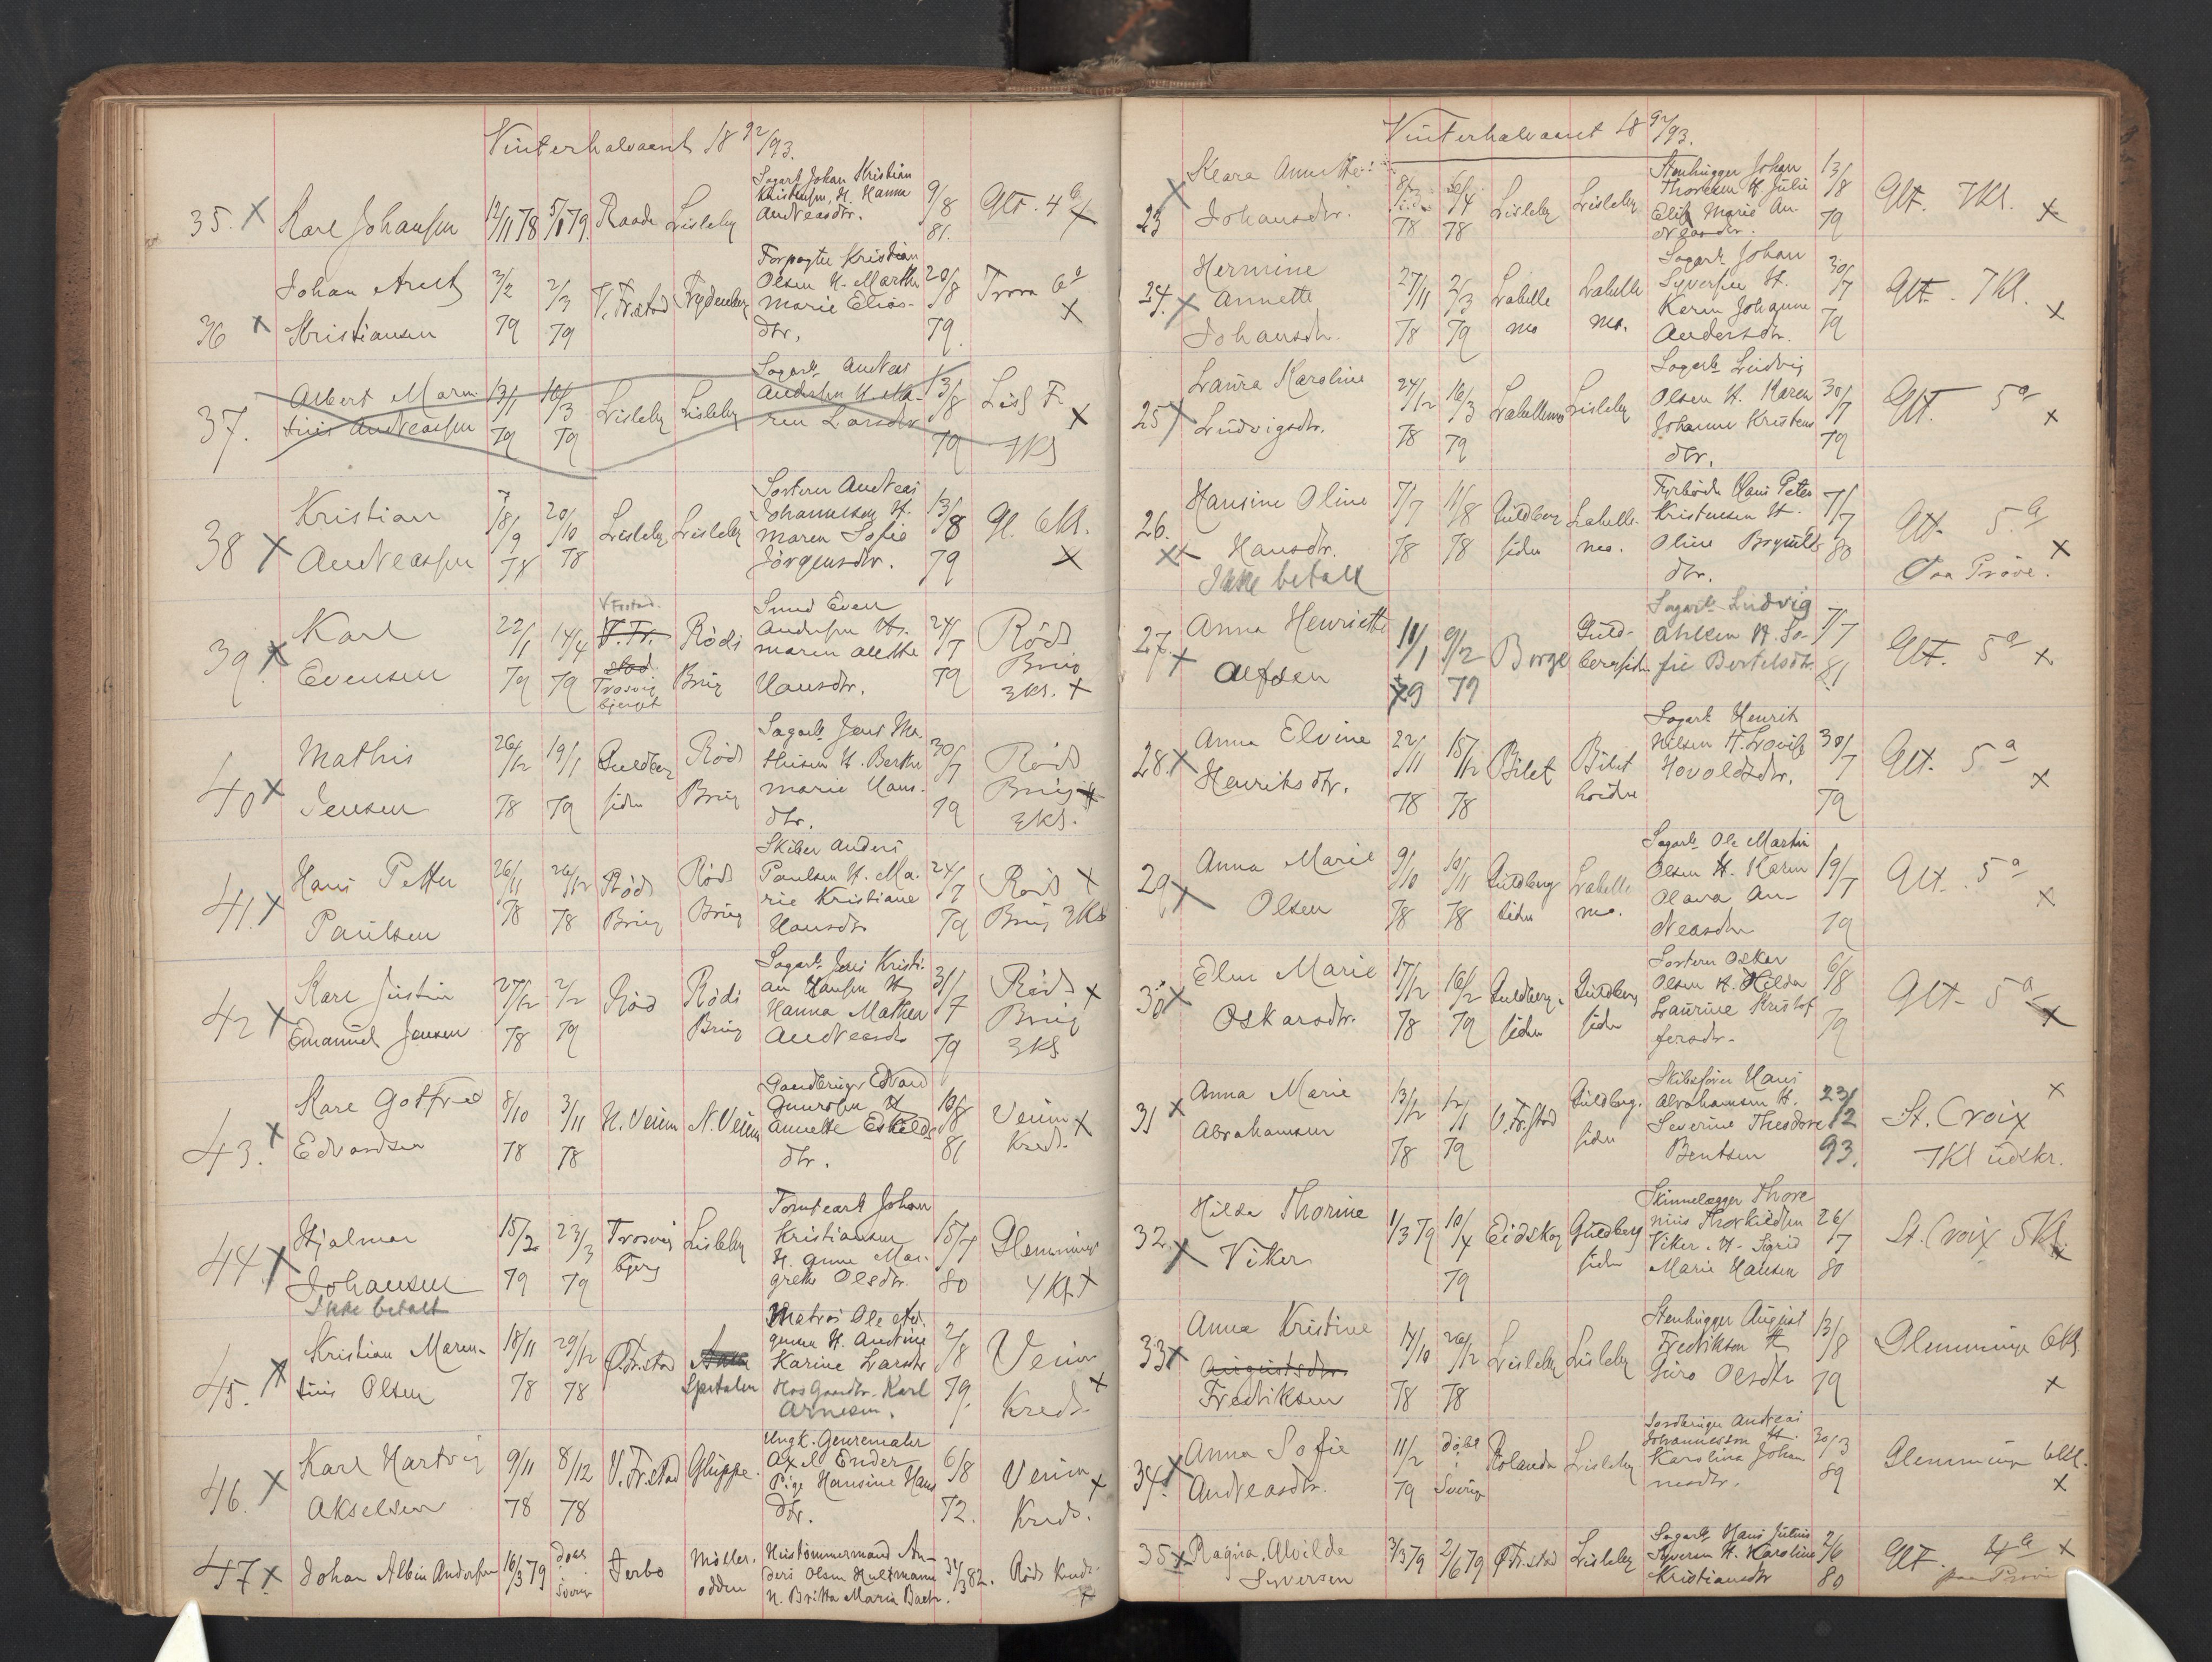 Vinterhalvaaret 18 92/93.
35. X Karl Johansen 12/11 78 5/1 79. Raade Lisleby Sagarb. Johan Kristian
Kristensen, H. Hanna
Andreasdtr. 9/8 81. Glt. 4 b X
36 X Johan Arnt
Kristiansen 3/2 79 2/3 79 V. Fr.stad Frydenberg Forpagter Kristian
Olsen H. Marthe
Marie Elias-
dtr. 20/8 79. Trosv 6a X
37. Albert Marin-
tius Andreassen 13/1 79 16/3 79 Lisleby Lisleby Sagarb. Andreas
Andersen H. Ma-
ren Larsdtr 13/8 79 Lisl F. X
7 Kl
38 X Kristian
Andreassen 8/9 78 20/10 78 Lisleby Lisleby Sorterer Andreas
Johannesen H.
Maren Sofie
Jørgensdtr. 13/8 79 Gl. 6 Kl. X
39. X Karl
Evensen 22/1 79 14/4 79 V Frstad.
V. Fr.
stad
Trosvig
bjerget Röds
Brug Smed Even
Andersen H.
Maren Alethe
Hansdtr. 24/7 79 Röds
Brug
3 Kl. X
40 X Mathis
Jensen 26/12 78 19/1 79 Guldberg
siden Röds
Brug Sagarb. Jens Ma-
thisen H. Berthe
Marie Hans-
dtr. 30/7 79 Röds
Brug X
3 Kl.
41. X Hans Petter
Paulsen 26/11 78 26/12 78 Röds
Brug Röds
Brug Skiber Anders
Paulsen H. Ma-
rie Kristiane
Hansdtr 24/7 79 Röds X
Brug 3 Kl
42 X Karl Justin
Emanuel Jensen 27/12 78 2/2 79 Röd Röds
Brug Sagarb. Jens Kristi-
an Hansen H
Hanna Mathea
Andreasdt 31/7 79 Röds X
Brug
3 Kl
43. X Karl Gotfred
Edvardsen 8/10 78 3/11 78 N. Veum N. Veum Gaardbruger Edvard
Gunersen H
Annette Eskilds
dtr. 10/8 81 Veum X
Kreds.
44. X Hjalmar
Johansen
Ikke betalt 15/2 79 23/3 79 Trosvig
bjerg Lisleby Tomtearb Johan
Kristiansen
H. Anne Mar-
grethe Olsdtr. 15/7 80 Glemminge
4 Kl X
45. X Kristian Maren-
tius Olsen 18/11 78 29/12 78 Ø. Fr.stad
Spetalen Matros Ole
H. Andrine
Karine Larsdtr
Hos Gaardbr. Karl
Arnesen. 2/8 79. Veum X
Kreds.
46. X Karl Hartvig
Akselsen 9/11 78 8/12 78 V. Fr.stad Gluppe. Ungk. Genremaler
Axel Ender
Pige Hansine Hans
dtr. 6/8 72. Veum X
Kreds.
47. X Johan Albin Andersen 16/3 79 döbt
i
Sverige Jerbo Möller-
odden Hustömmermand An-
ders Olsen Hultmann
H. Britta Maria 31/3 82. Röds Kreds. X
Vinterhalvaaret 18 92/93.
23 X Klara Annette
Johansdtr. 78 78 Lisleby Lisleby Stenhugger Johan
Thoresen H. Julie
Elis Marie An-
dreasdtr. 13/8 79 Glt. 7 Kl. X
24. X Hermine
Annette
Johansdtr. 27/11 78 2/3 79 Labelle
mo Labelle
mo. Sagarb. Johan
Syversen H.
Karen Johanne
Andersdtr. 30/7 79 Glt. 7 Kl. X
25 X Laura Karoline
Ludvigsdtr. 24/12 78 16/3 79 Labellemo Lisleby Sagarb. Ludvig
Olsen H. Karen
Johanne Kristens
dtr. 30/7 79 Glt. 5 a X
26. XX Hansine Oline
Hansdtr.
Ikke betalt 7/7 78 11/8 78 Guldberg
siden Labelle-
mo. Fyrböder Hans Peter
Kristensen H.
Oline Brynilds
dtr. 7/7 80 Glt. 5 a X
Paa Prøve.
27. X Anna Henriette
Alfsen 11/1 79 9/2 79 Borge Guld-
bergsiden Sagarb. Ludvig
Ahlsen H. So-
fie Bertelsdtr. 7/7 81 Glt. 5 a X
28. X Anna Elvine
Henriksdtr. 22/11 78 15/12 78 Bilet Bilet
holdne Sagarb. Henrik
Nilsen H. Lovise
Hovoldsdtr. 30/7 79 Glt. 5 a X
29 X Anna Marie
Olsen 9/10 78 10/11 78 Guldberg
siden Labelle
mo. Sagarb. Ole Martin
Olsen H. Karen
Olava An-
dreasdtr 19/7 79 Glt. 5 a X
30 X Elen Marie
Oskarsdtr. 17/12 78 16/2 79 Guldberg-
siden Guldberg
siden Sorterer Oskar
Olsen H. Hilda
Laurine Kristof
fersdtr. 6/8 79 Glt. 5 a X
31 X Anna Marie
Abrahamsen 13/12 78 1/1 79 V. Fr.stad Guldberg-
siden Skibsfører Hans
Abrahamsen H.
Severine Theodore
Bentsen 23/12 93. St. Croix X
7 Kl udskr.
32. X Hilda Thorine
Viker 1/3 79 10/4 79 Eidskog Guldberg
siden Skinnelægger Thore
nius Thorkildsen
Viker. H. Sigrid
Marie Hansen 26/7 80 St. Croix 5 Kl. X
33 X Anna Kristine
Augustsdtr.
Fredriksen 14/10 78 26/12 78 Lisleby Lisleby Stenhugger August
Fredriksen H
Guro Olsdtr 13/8 79 Glemminge 6 Kl. X
34. X Anna Sofie
Andreasdtr. 11/2 79 döbt
i
Sverige Rolanda Lisleby Jordbruger Andreas
Johannesson H.
Karolina Johan
nesdtr. 30/3 89 Glemminge 6 Kl. X
35 X Ragna Alvilde
Syversen 3/3 79 2/6 79 Ø. Fr.stad Lisleby Sagarb. Hans Julius
Syversen H. Karoline
Kristiansdtr 2/6 80 Glt. 4 a X
paa Prøve